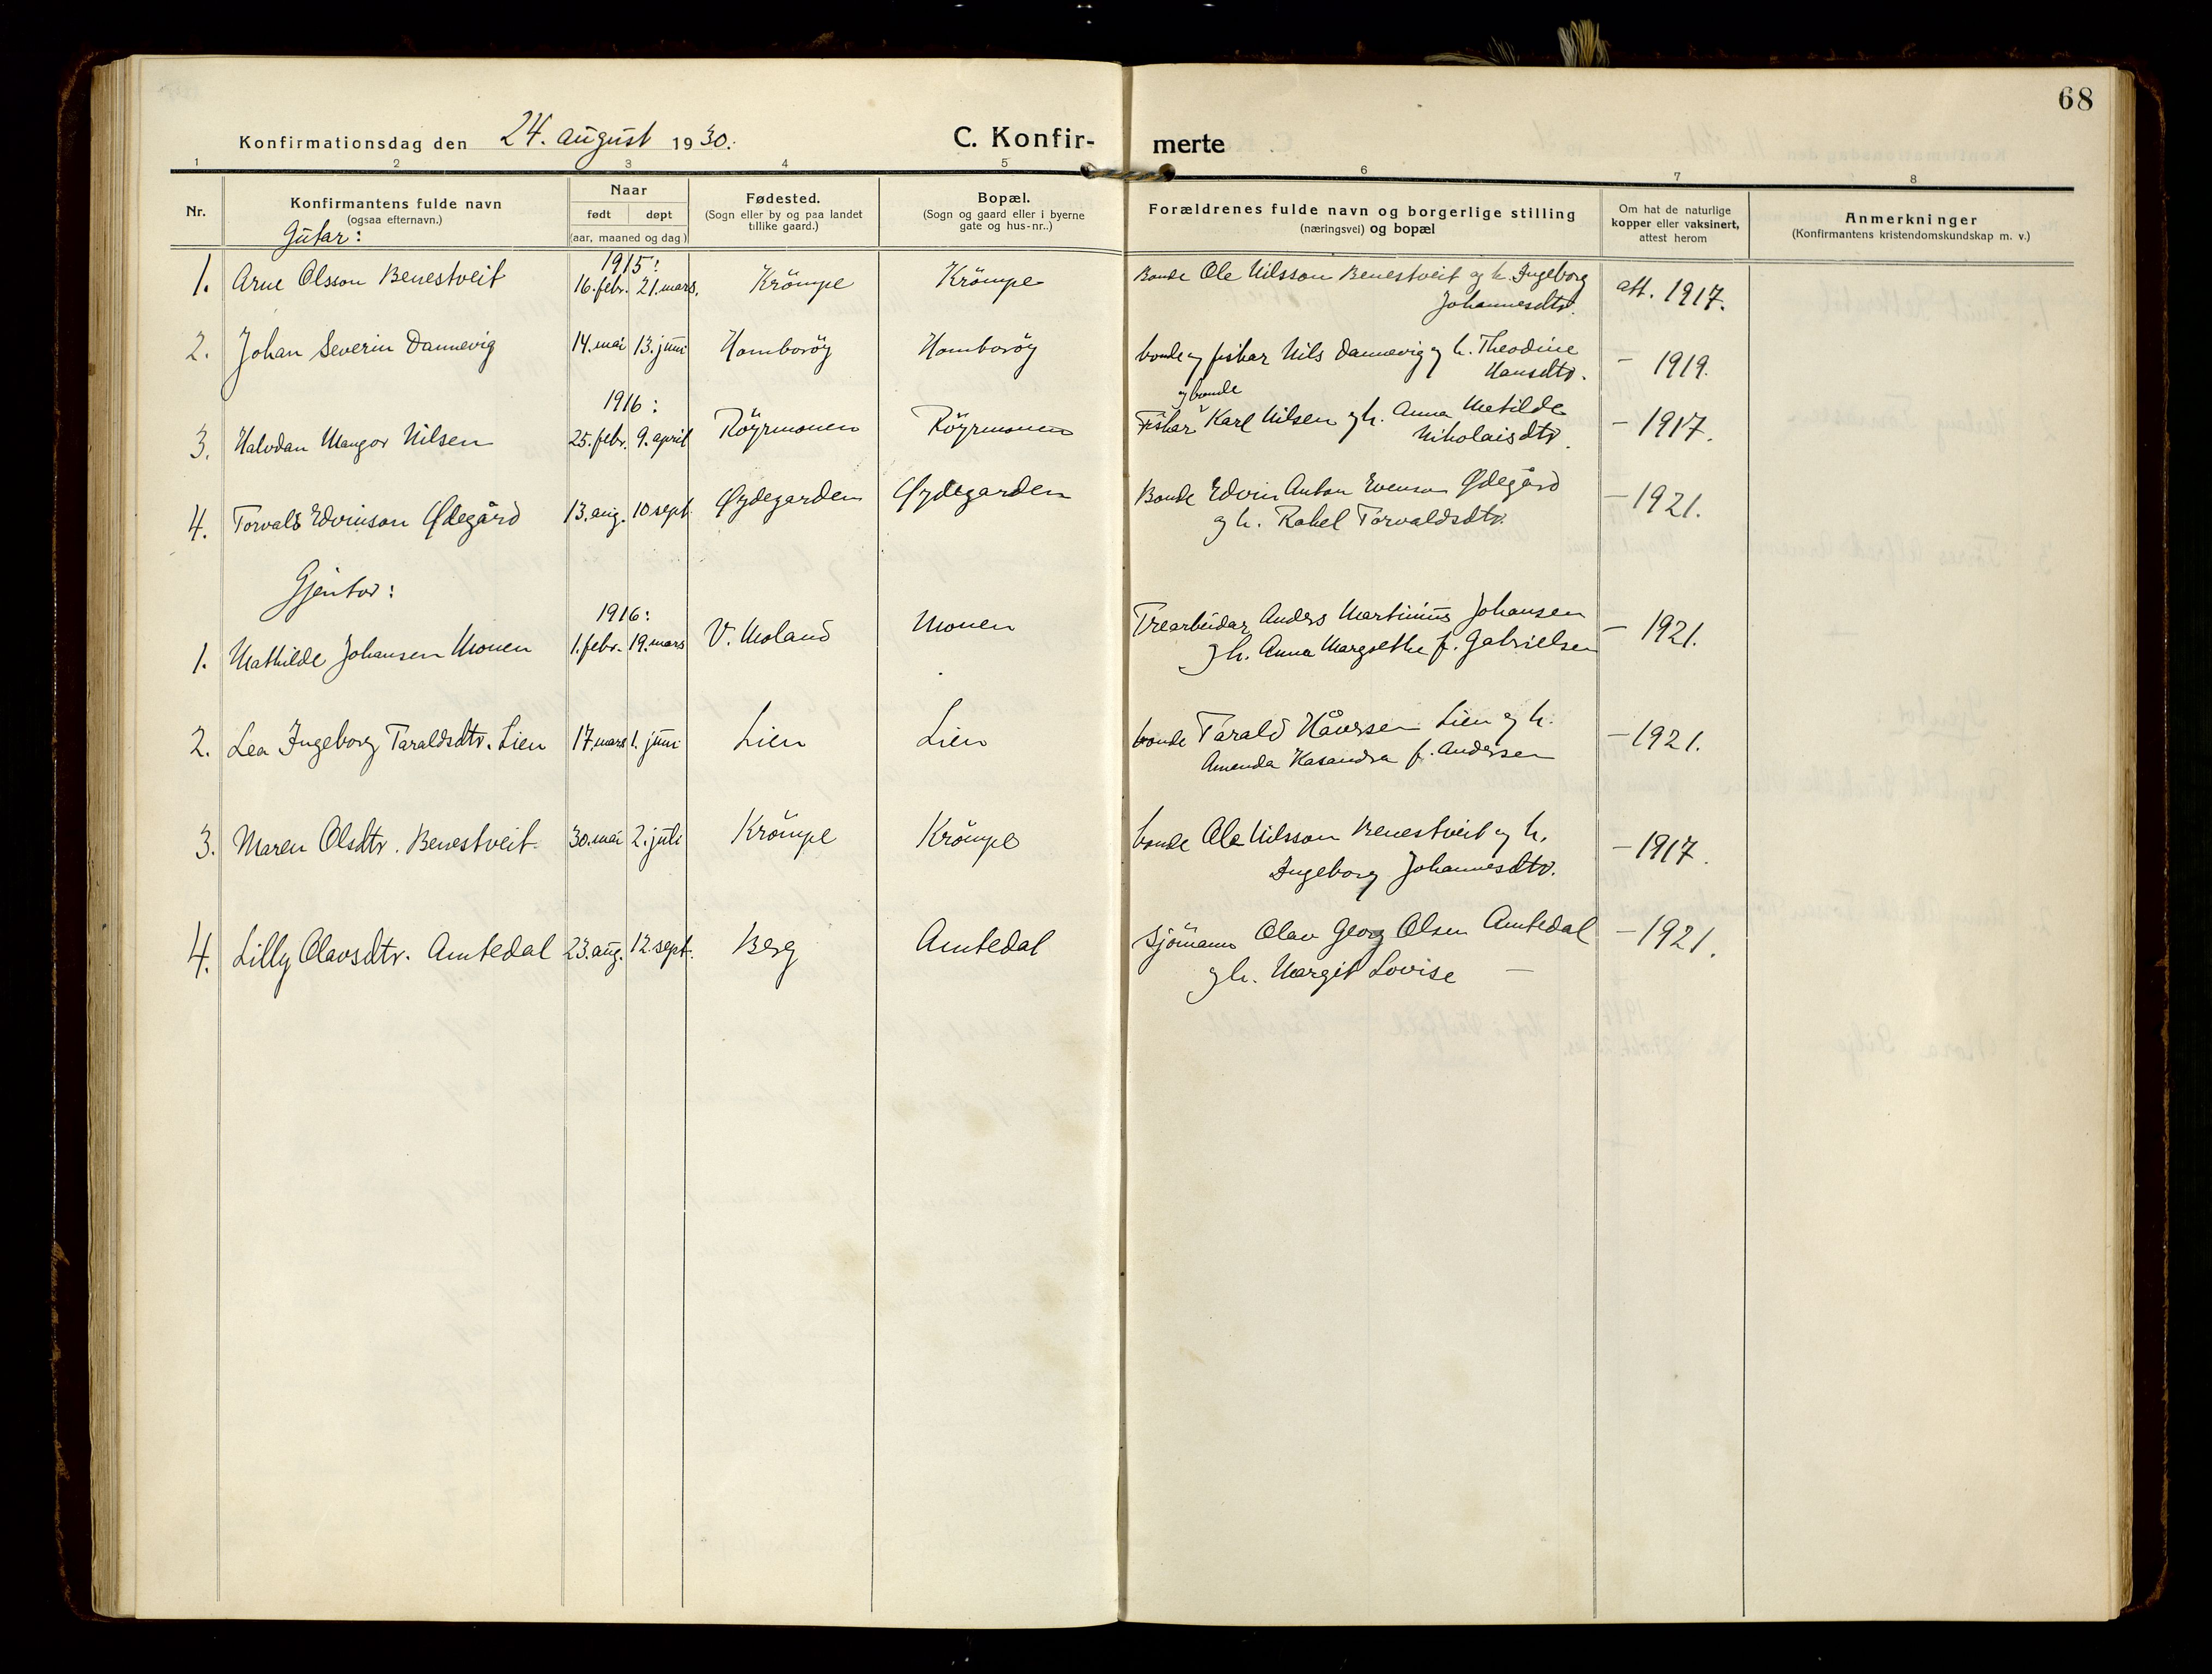 68
Konfirmationsdag den 24. august 1930.
C. Konfir- merte
1 2 3 4 5 6 7 8
Nr.
Konfirmantens fulde navn
(ogsaa efternavn.)
Naar
født døpt
(aar, maaned og dag)
Fødested.
(Sogn eller by og paa landet
tillike gaard.)
Bopæl.
(Sogn og gaard eller i byerne
gate og hus-nr..)
Forældrenes fulde navn og borgerlige stilling
(næringsvei) og bopæl
Om hat de naturlige
kopper eller vaksinert,
attest herom
Anmerkninger
(Konfirmantens kristendomskundskap m. v.)
Gutar:
1915:
1. Arne Olsson Benestveit 16. febr. 21. mars. Krömpe Krömpe Bonde Ole Nilsson Benestveit og h. Ingeborg att. 1917.
Johannesdtr.
2. Johan Severin Dannevig 14. mai 13. juni Homboröy Homboröy bonde og fiskar Nils Dannevig og h. Theodine — 1919.
Hansdtr.
1916:
og bonde
3. Halvdan Mangor Nilsen 25. febr. 9. april Röyrmonen Röyrmonen Fiskar Karl Nilsen og h. Anna Matilde — 1917.
Nikolaisdtr.
4. Torvald Edvinson Ødegård 13. aug. 10 sept. Øydegarden Øydegarden Bonde Edvin Anton Evenson Ødegård — 1921.
og h. Rakel Torvaldsdtr.
Gjentor:
1916:
1. Mathilde Johansen Monen 1. febr. 19. mars V. Moland Monen Trearbeidar Anders Martinius Johansen — 1921.
og h. Anna Margrethe f. Gabrielsen
2. Lea Ingeborg Taraldsdtr. Lien 17. mars 1. juni Lien Lien bonde Tarald Håversen Lien og h. — 1921.
Amanda Kasandra f. Andersen
3. Maren Olsdtr. Benestveit 30. mai 2. juli Krömpe Krömpe bonde Ola Nilsson Benestveit og h. — 1917.
Ingeborg Johannesdtr.
4. Lilly Olavsdtr. Amtedal 23. aug. 12. sept. Berg Amtedal sjömann Olav Georg Olsen Amtedal — 1921.
og h. Margit Lovise —